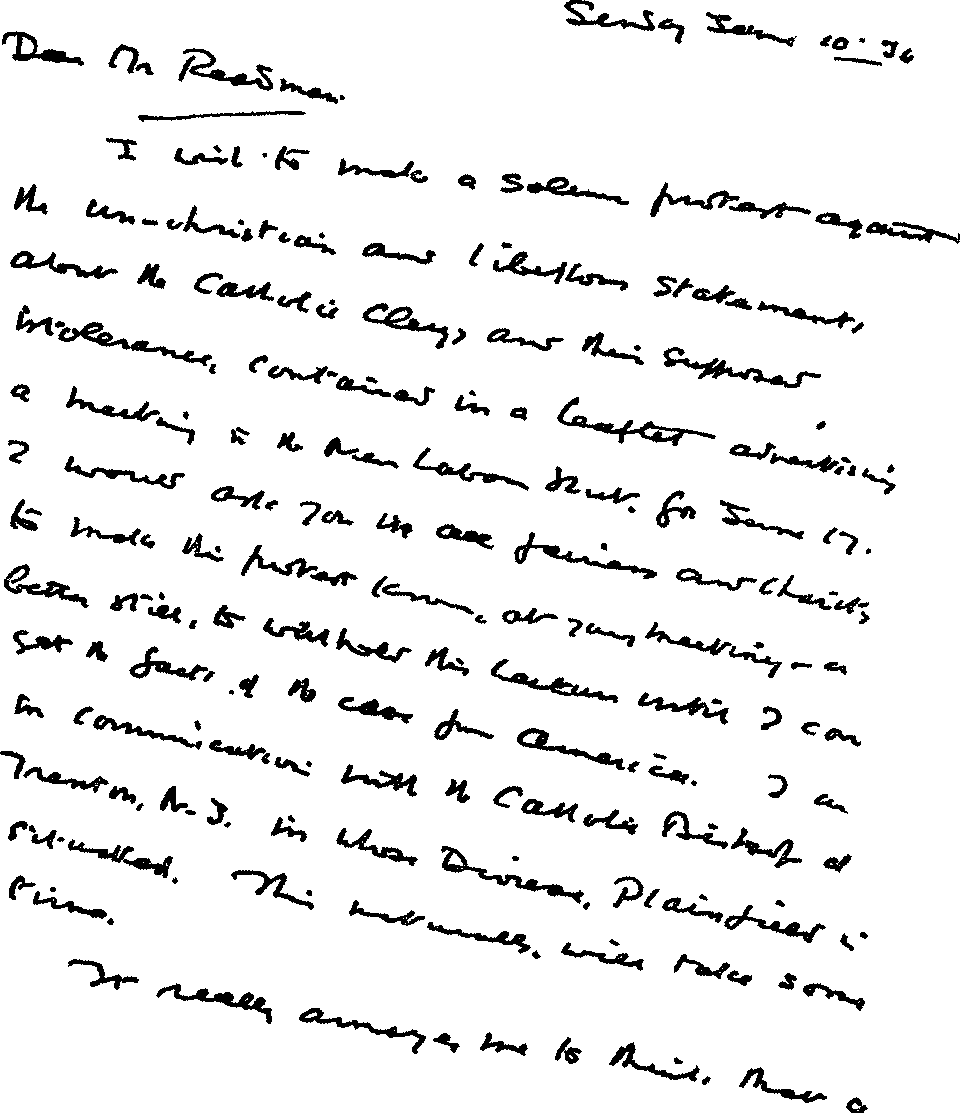 Sunday June 10. 36
Dear Mr Readman.
I wish to make a solemn protest against
the un-christian and libellous statements
about the Catholic Clergy, and their supposed
intolerance, contained in a leaflet advertising
a meeting in the Labour for June 17.
I would ask you in all fairness and charity
to make this protest known, at your meeting - or
better still, to withhold this lecture until I can
get the facts of the case from America. I am
in communication with the Catholic Bishop of
Trenton, N.J. in whose Diocese, Plainfield is
situated. This naturally, will take some
time.
It really annoys me to think, that a